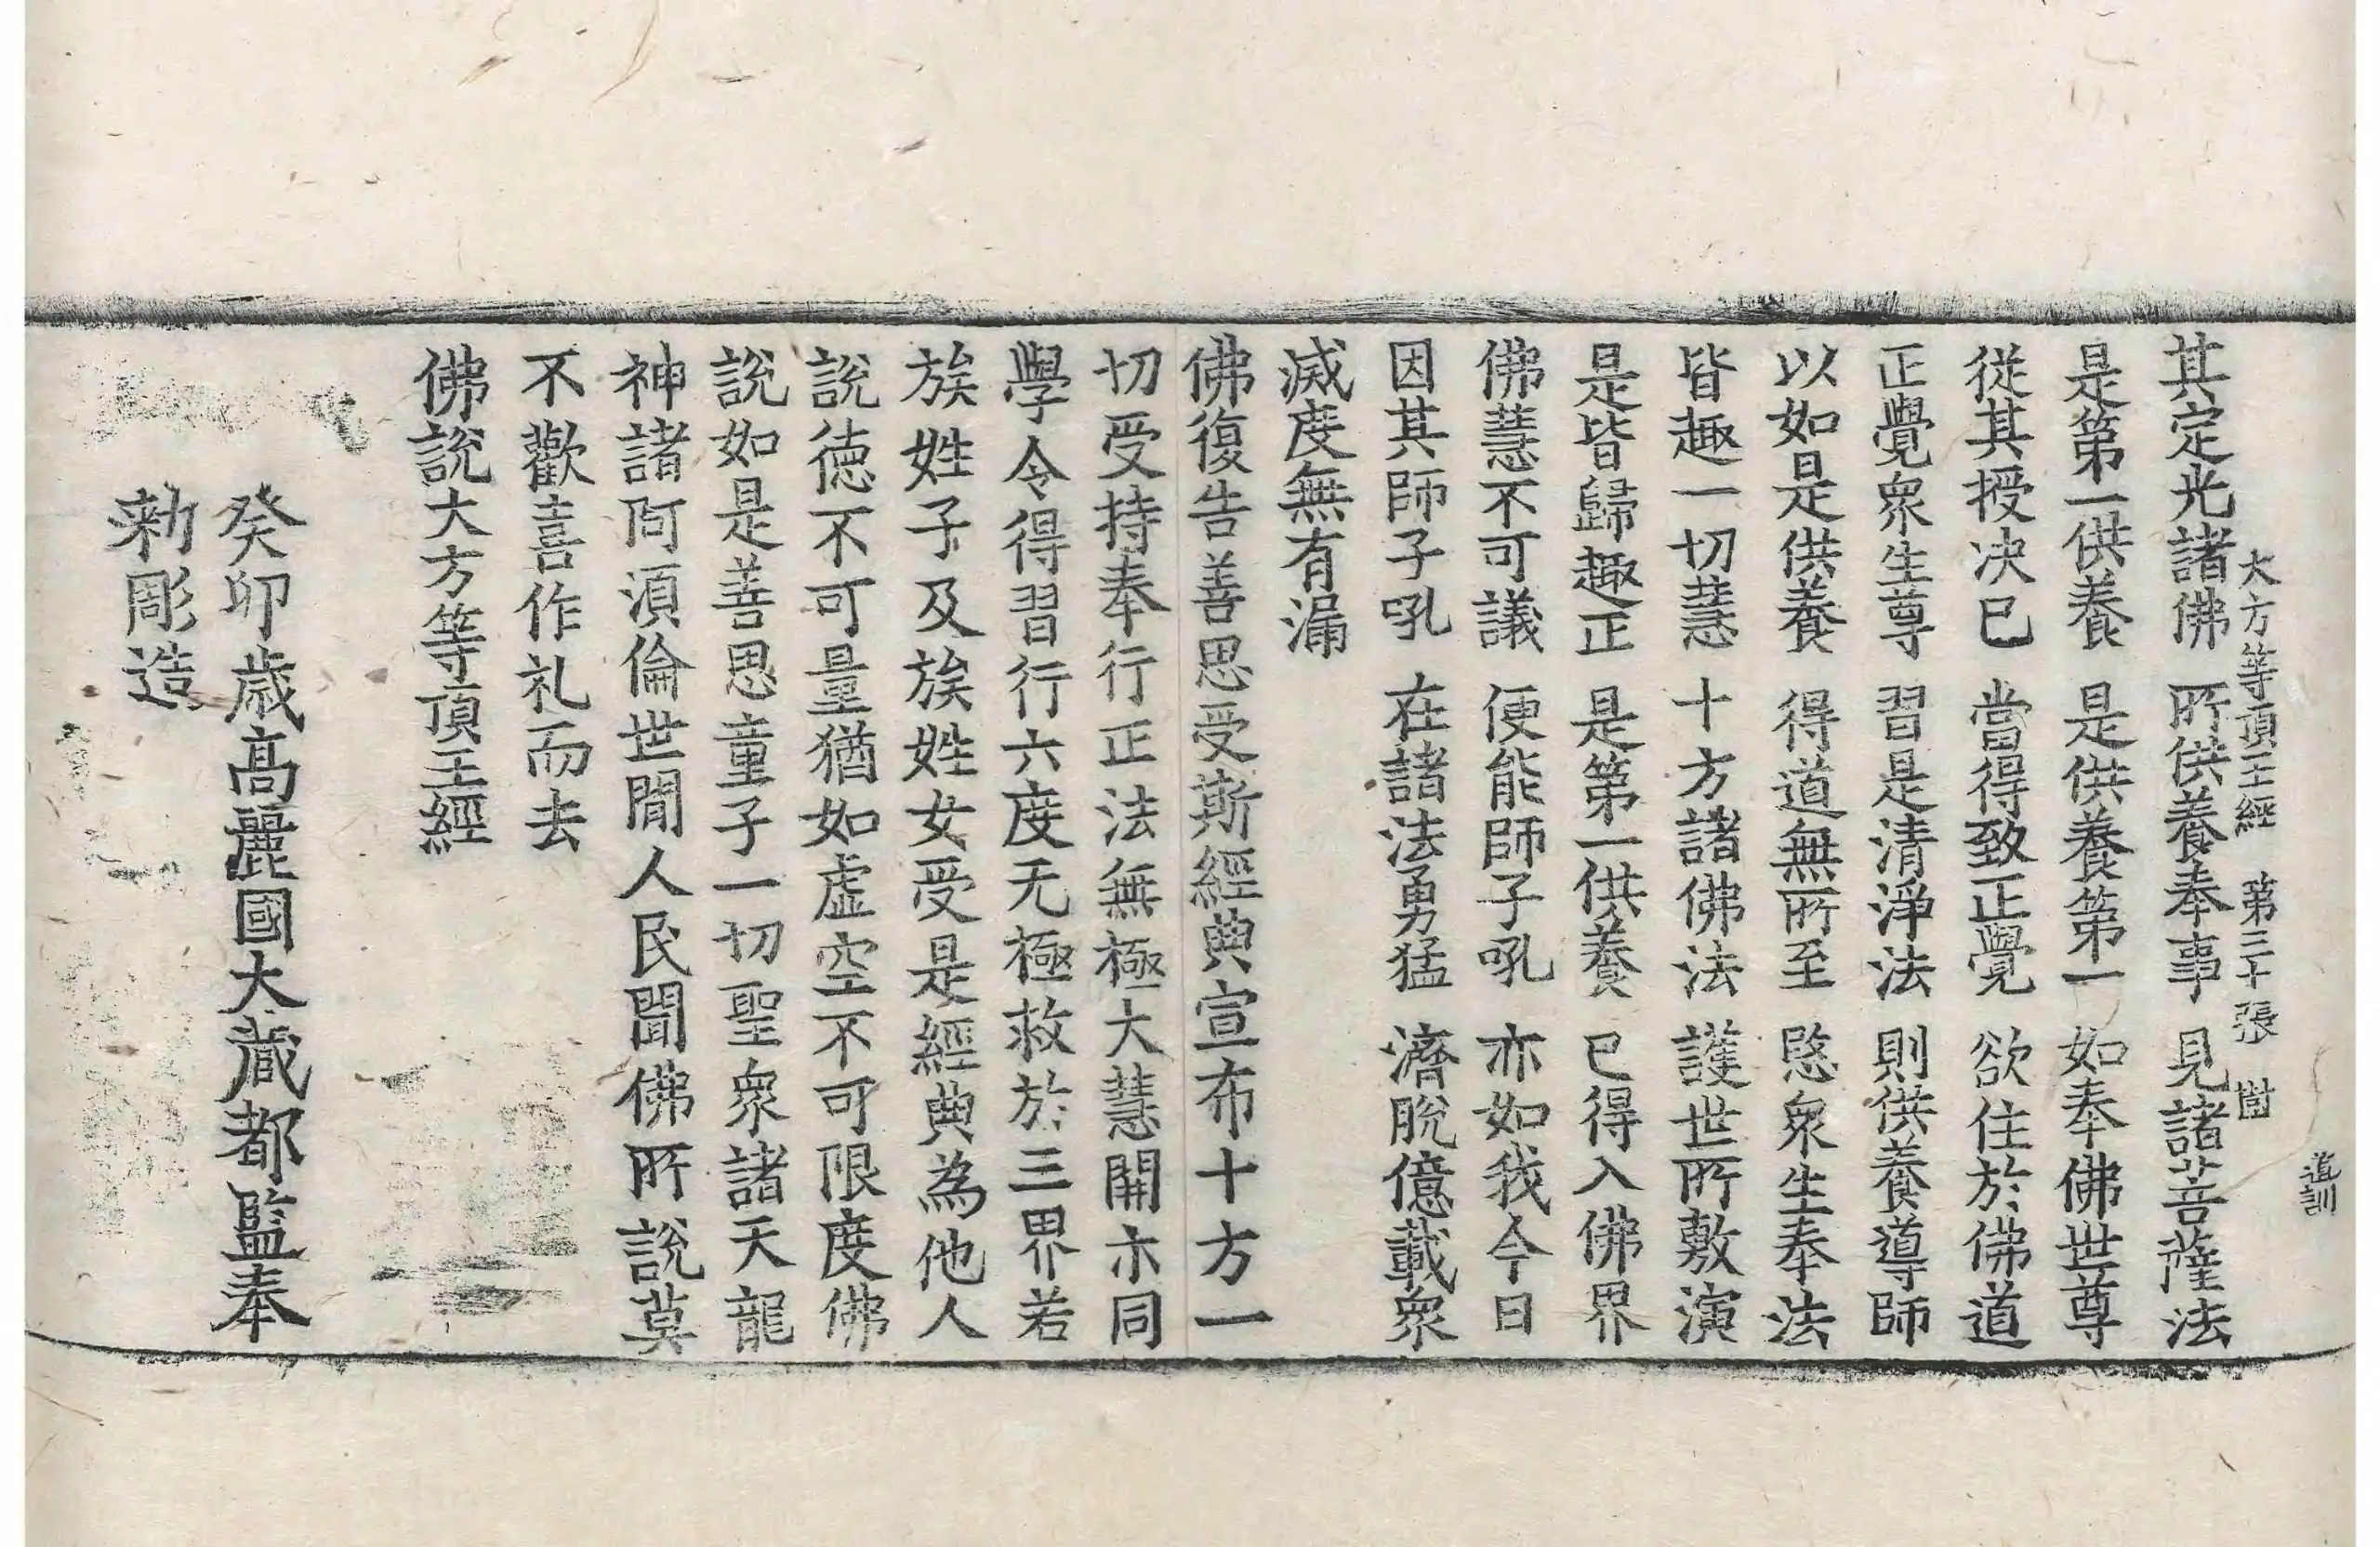 道訓
大方等頂王經 第三十張 樹
其定光諸佛 所供養奉事 見諸菩薩法
是第一供養 是供養第一 如奉佛世尊
從其授決已 當得致正覺 欲住於佛道
正覺衆生尊 習是清淨法 則供養導師
以如是供養 得道無所至 愍衆生奉法
皆趣一切慧 十方諸佛法 護世所敷演
是皆歸趣正 是第一供養 已得入佛界
佛慧不可議 便能師子吼 亦如我今日
因其師子吼 在諸法勇猛 濟脫億載衆
滅度無有漏
佛復告善思受斯經典宣布十方一
切受持奉行正法無極大慧開示同
學令得習行六度无極救於三界若
族姓子及族姓女受是經典為他人
說德不可量猶如虛空不可限度佛
說如是善思童子一切聖衆諸天龍
神諸阿須倫世閒人民聞佛所說莫
不歡喜作礼而去
佛說大方等頂王經
癸卯歲高麗國大藏都監奉
勑彫造